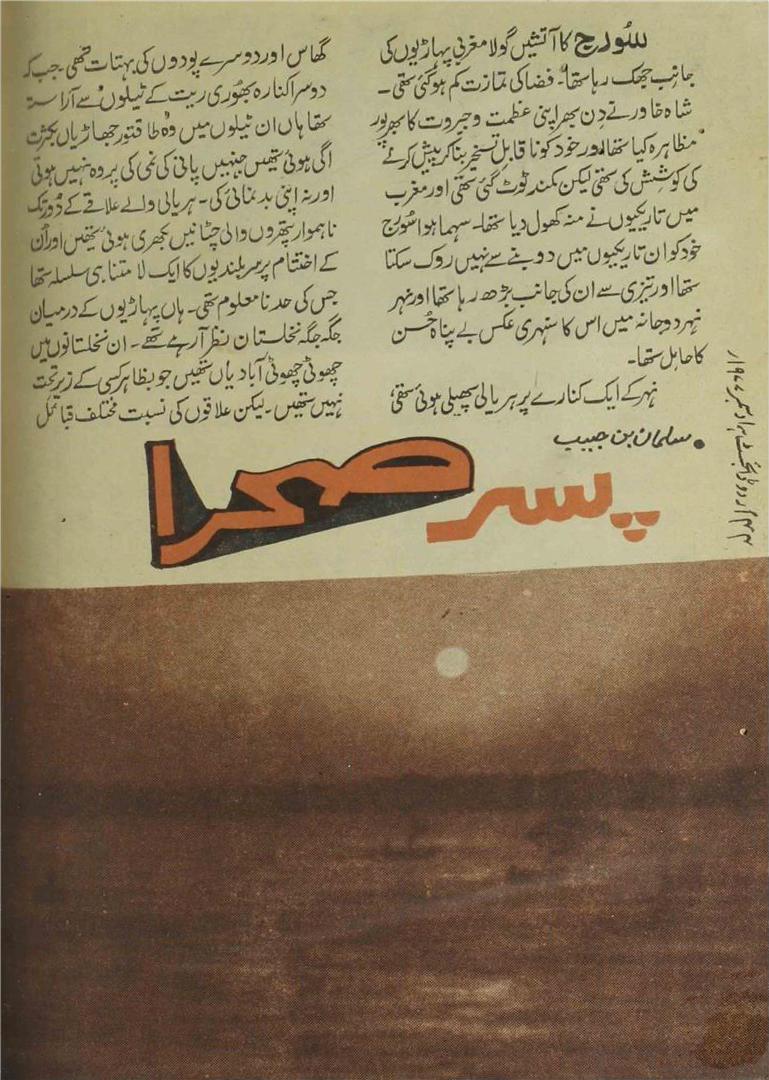 سورج کا آتشیں گولا مغربی پہاڑیوں کی
جانب جھک رہا تھا۔ فضا کی تمازت کم ہوگئی تھی۔
شاہ خاور نے دن بھر اپنی عظمت و جبروت کا بھرپور
مظاہرہ کیا تھا اور خود کو ناقابل تسخیر بنا کر پیش کرنے
کی کوشش کی تھی لیکن کمند ٹوٹ گئی تھی اور مغرب
میں تاریکیوں نے منہ کھول دیا تھا۔ سہما ہوا سورج
خود کو ان تاریکیوں میں ڈوبنے سے نہیں روک سکتا
تھا اور تیزی سے ان کی جانب بڑھ رہا تھا اور نہر
نہر دوجانہ میں اس کا سنہری عکس بے پناہ حسن
کا حامل تھا۔
نہر کے ایک کنارے پر ہریالی پھیلی ہوئی تھی
گھاس اور دوسرے پودوں کی بہتات تھی۔ جب کہ
دوسرا کنارہ بھوری ریت کے ٹیلوں سے آراستہ
تھا ہاں ان ٹیلوں میں وہ طاقتور جھاڑیاں بکثرت
اگی ہوئی تھیں جنہیں پانی کی نمی کی پروہ نہیں ہوتی
اور نہ اپنی بدنمائی کی۔ ہریالی والے علاقے کے دور تک
ناہموار پتھروں والی چٹانیں بکھری ہوئی تھیں اور ان
کے اختتام پر سربلندیوں کا ایک لامتناہی سلسلہ تھا
جس کی حد نامعلوم تھی۔ ہاں پہاڑیوں کے درمیان
جگہ جگہ نخلستان نظر آرہے تھے۔ ان نخلستانوں میں
چھوٹی چھوٹی آبادیاں تھیں جو بظاہر کسی کے زیر تحت
نہیں تھیں۔ لیکن علاقوں کی نسبت مختلف قبائل
• سلمان بن حبیب
پسر صحرا